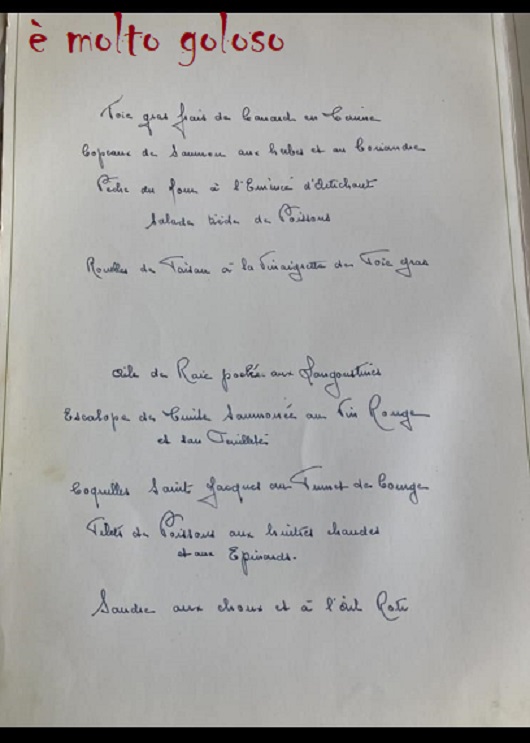 è molto goloso
Foie gras frais de Canard en Terrine
Copeaux de Saumon aux herbes et au Coriandre
Pêche du Jour à l'Emincé d'Artichaut
Salade tiède de Poissons
Rouelles de Faisan à la Vinaigrette de Foie gras
Aile de Raie pochée aux Langoustines
Escalope de Truite Saumonée au Vin Rouge
et son Feuilleté
Coquilles Saint Jacques au Fumet de Courge
Filets de Poissons aux huîtres chaudes
et aux Epinards.
Sandre aux choux et à l'ail Roti